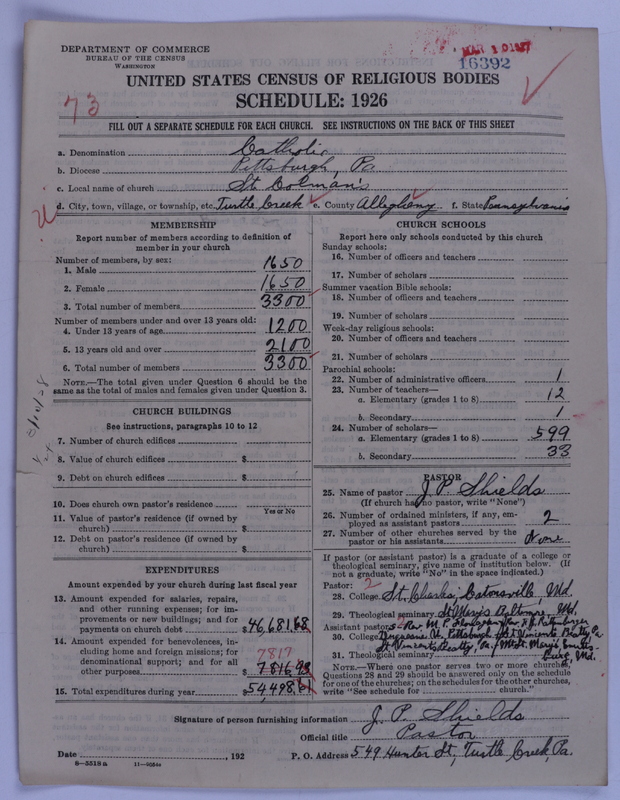 DEPARTMENT OF COMMERCE
BUREAU OF THE CENSUS
WASHINGTON
MAR 10 1927
16392
UNITED STATES CENSUS OF RELIGIOUS BODIES
SCHEDULE: 1926
73
FILL OUT A SEPARATE SCHEDULE FOR EACH CHURCH. SEE INSTRUCTIONS ON THE BACK OF THIS SHEET
a. Denomination Catholic
b. Diocese Pittsburgh, Pa
c. Local name of church St. Colman's
d. City, town, village, or township, etc. Turtle Creek e. County Allegheny f. State Pennsylvania
MEMBERSHIP
Report number of members according to definition of member in your church
Number of members, by sex:
1. Male 1650
2. Female 1650
3. Total number of members 3300
Number of members under and over 13 years old:
4. Under 13 years of age 1200
5. 13 years old and over 2100
6. Total number of members 3300
NOTE.—The total given under Question 6 should be the same as the total of males and females given under Question 3.
CHURCH BUILDINGS
See instructions, paragraphs 10 to 12
7. Number of church edifices
8. Value of church edifices $
9. Debt on church edifices $
10. Does church own pastor's residence
Yes or No
11. Value of pastor's residence (if owned by church) $
12. Debt on pastor's residence (if owned by church) $
EXPENDITURES
Amount expended by your church during last fiscal year
13. Amount expended for salaries, repairs, and other running expenses; for improvements or new buildings; and for payments on church debt $46,681.68
14. Amount expended for benevolences, including home and foreign missions; for denominational support; and for all other purposes $7816.93
7817
15. Total expenditures during year $54,498.61
CHURCH SCHOOLS
Report here only schools conducted by this church
Sunday schools:
16. Number of officers and teachers
17. Number of scholars
Summer vacation Bible schools:
18. Number of officers and teachers
19. Number of scholars
Week-day religious schools:
20. Number of officers and teachers
21. Number of scholars
Parochial schools:
22. Number of administrative officers 1
23. Number of teachers—
a. Elementary (grades 1 to 8) 12
b. Secondary 1
24. Number of scholars—
a. Elementary (grades 1 to 8) 599
b. Secondary 33
PASTOR
25. Name of pastor J. P. Shields
(If church has no pastor, write "None")
26. Number of ordained ministers, if any, employed as assistant pastors 2
27. Number of other churches served by the pastor or his assistants None
If pastor (or assistant pastor) is a graduate of a college or theological seminary, give name of institution below. (If not a graduate, write "No" in the space indicated.)
Pastor: 2
28. College St. Charles, Catonsville, Md.
29. Theological seminary St Mary's Baltimore, Md.
Assistant pastors: Rev. M. P.
30. College Duquesne U. Pittsburgh St Vincents Beatty Pa
31. Theological seminary St Vincents Beatty, Pa. Mt St. Mary's Emmitsburg, Md.
NOTE.—Where one pastor serves two or more churches, Questions 28 and 29 should be answered only on the schedule for one of the churches; on the schedules for the other churches, write "See schedule for church."
Signature of person furnishing information J. P. Shields
Official title Pastor
Date , 192 P. O. Address 549 Hunter St, Turtle Creek, Pa.
8—5518a